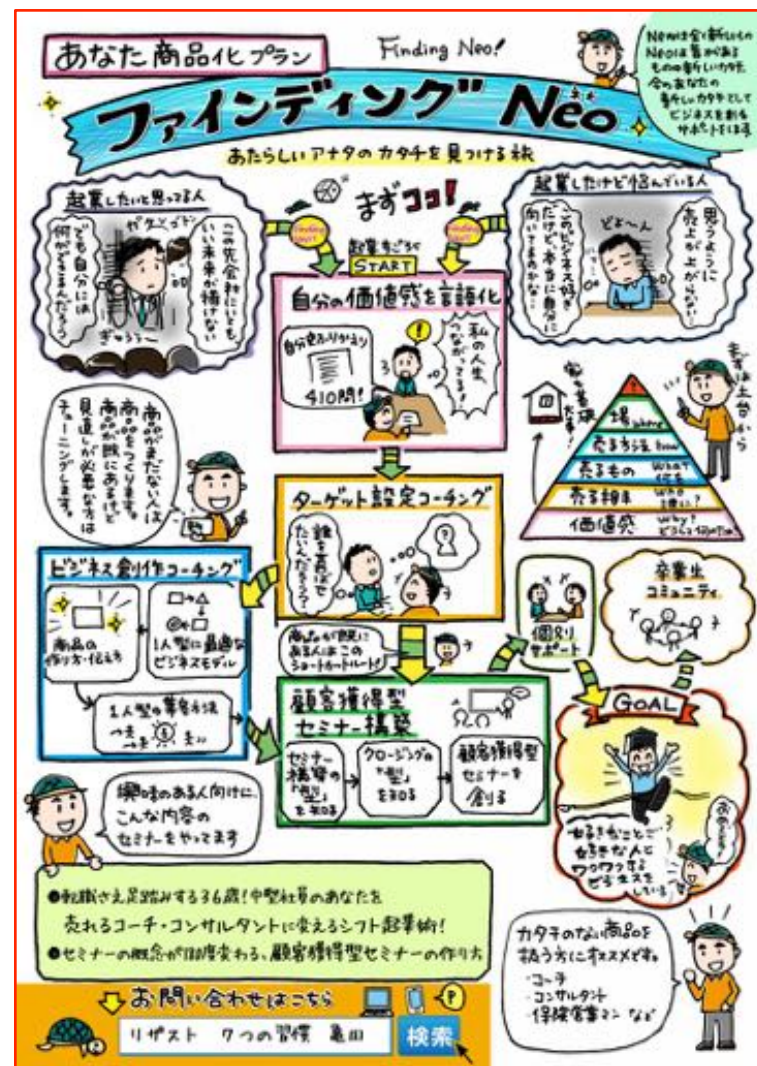 あなた商品化プラン
Finding Neo!
ファインディング Neo
ネオ
あたらしいアナタのカタチを見つける旅
Neoは全く新しいもの
Neoは昔がある
ものの新しいカタチ
今のあなたの
新しいカタチとして
ビジネスを創る
サポートをします
起業したいと思ってる人
ガタンゴトン
この先会社にいても
いい未来が描けない
でも自分には
何ができるんだろう
ぎゅうぅ〜
まずココ!
起業したけど悩んでいる人
どよ〜ん
思うように
売上が上がらない…
このビジネス好き
だけど、本当に自分に
向いてるのかな…
START
自分の価値感を言語化
自分史ふりかえり
410問!
私の人生、
つながってる!
まずは土台から
家も基礎
だす!
場 where
売る方法 how
売るもの What 何を
売る相手 Who 誰に?
価値感 Why?
商品がまだない人は
商品をつくります。
商品が既にあるけど
見直しが必要な方は
チューニングします。
ターゲット設定コーチング
誰を喜ばせ
たいんだろう?
ビジネス創作コーチング
商品の
作り方・伝え方
1人型に最適な
ビジネスモデル
1人型の集客方法
商品が既に
ある人はこの
ショートカットルート!
個別
サポート
卒業生
コミュニティ
顧客獲得型
セミナー構築
セミナー
構築の
「型」
を知る
クロージングの
「型」
を知る
顧客獲得型
セミナーを
創る
GOAL
おめでとう!
好きなことで
好きな人と
ワクワクする
ビジネスを
している
興味のある人向けに、
こんな内容の
セミナーをやってます
●転職さえ足踏みする36歳!中堅社員のあなたを
売れるコーチ・コンサルタントに変えるシフト起業術!
●セミナーの概念が180度変わる、顧客獲得型セミナーの作り方
カタチのない商品を
扱う方にオススメです。
・コーチ
・コンサルタント
・保険営業マン など
お問い合わせはこちら
リザスト 7つの習慣 亀田
検索